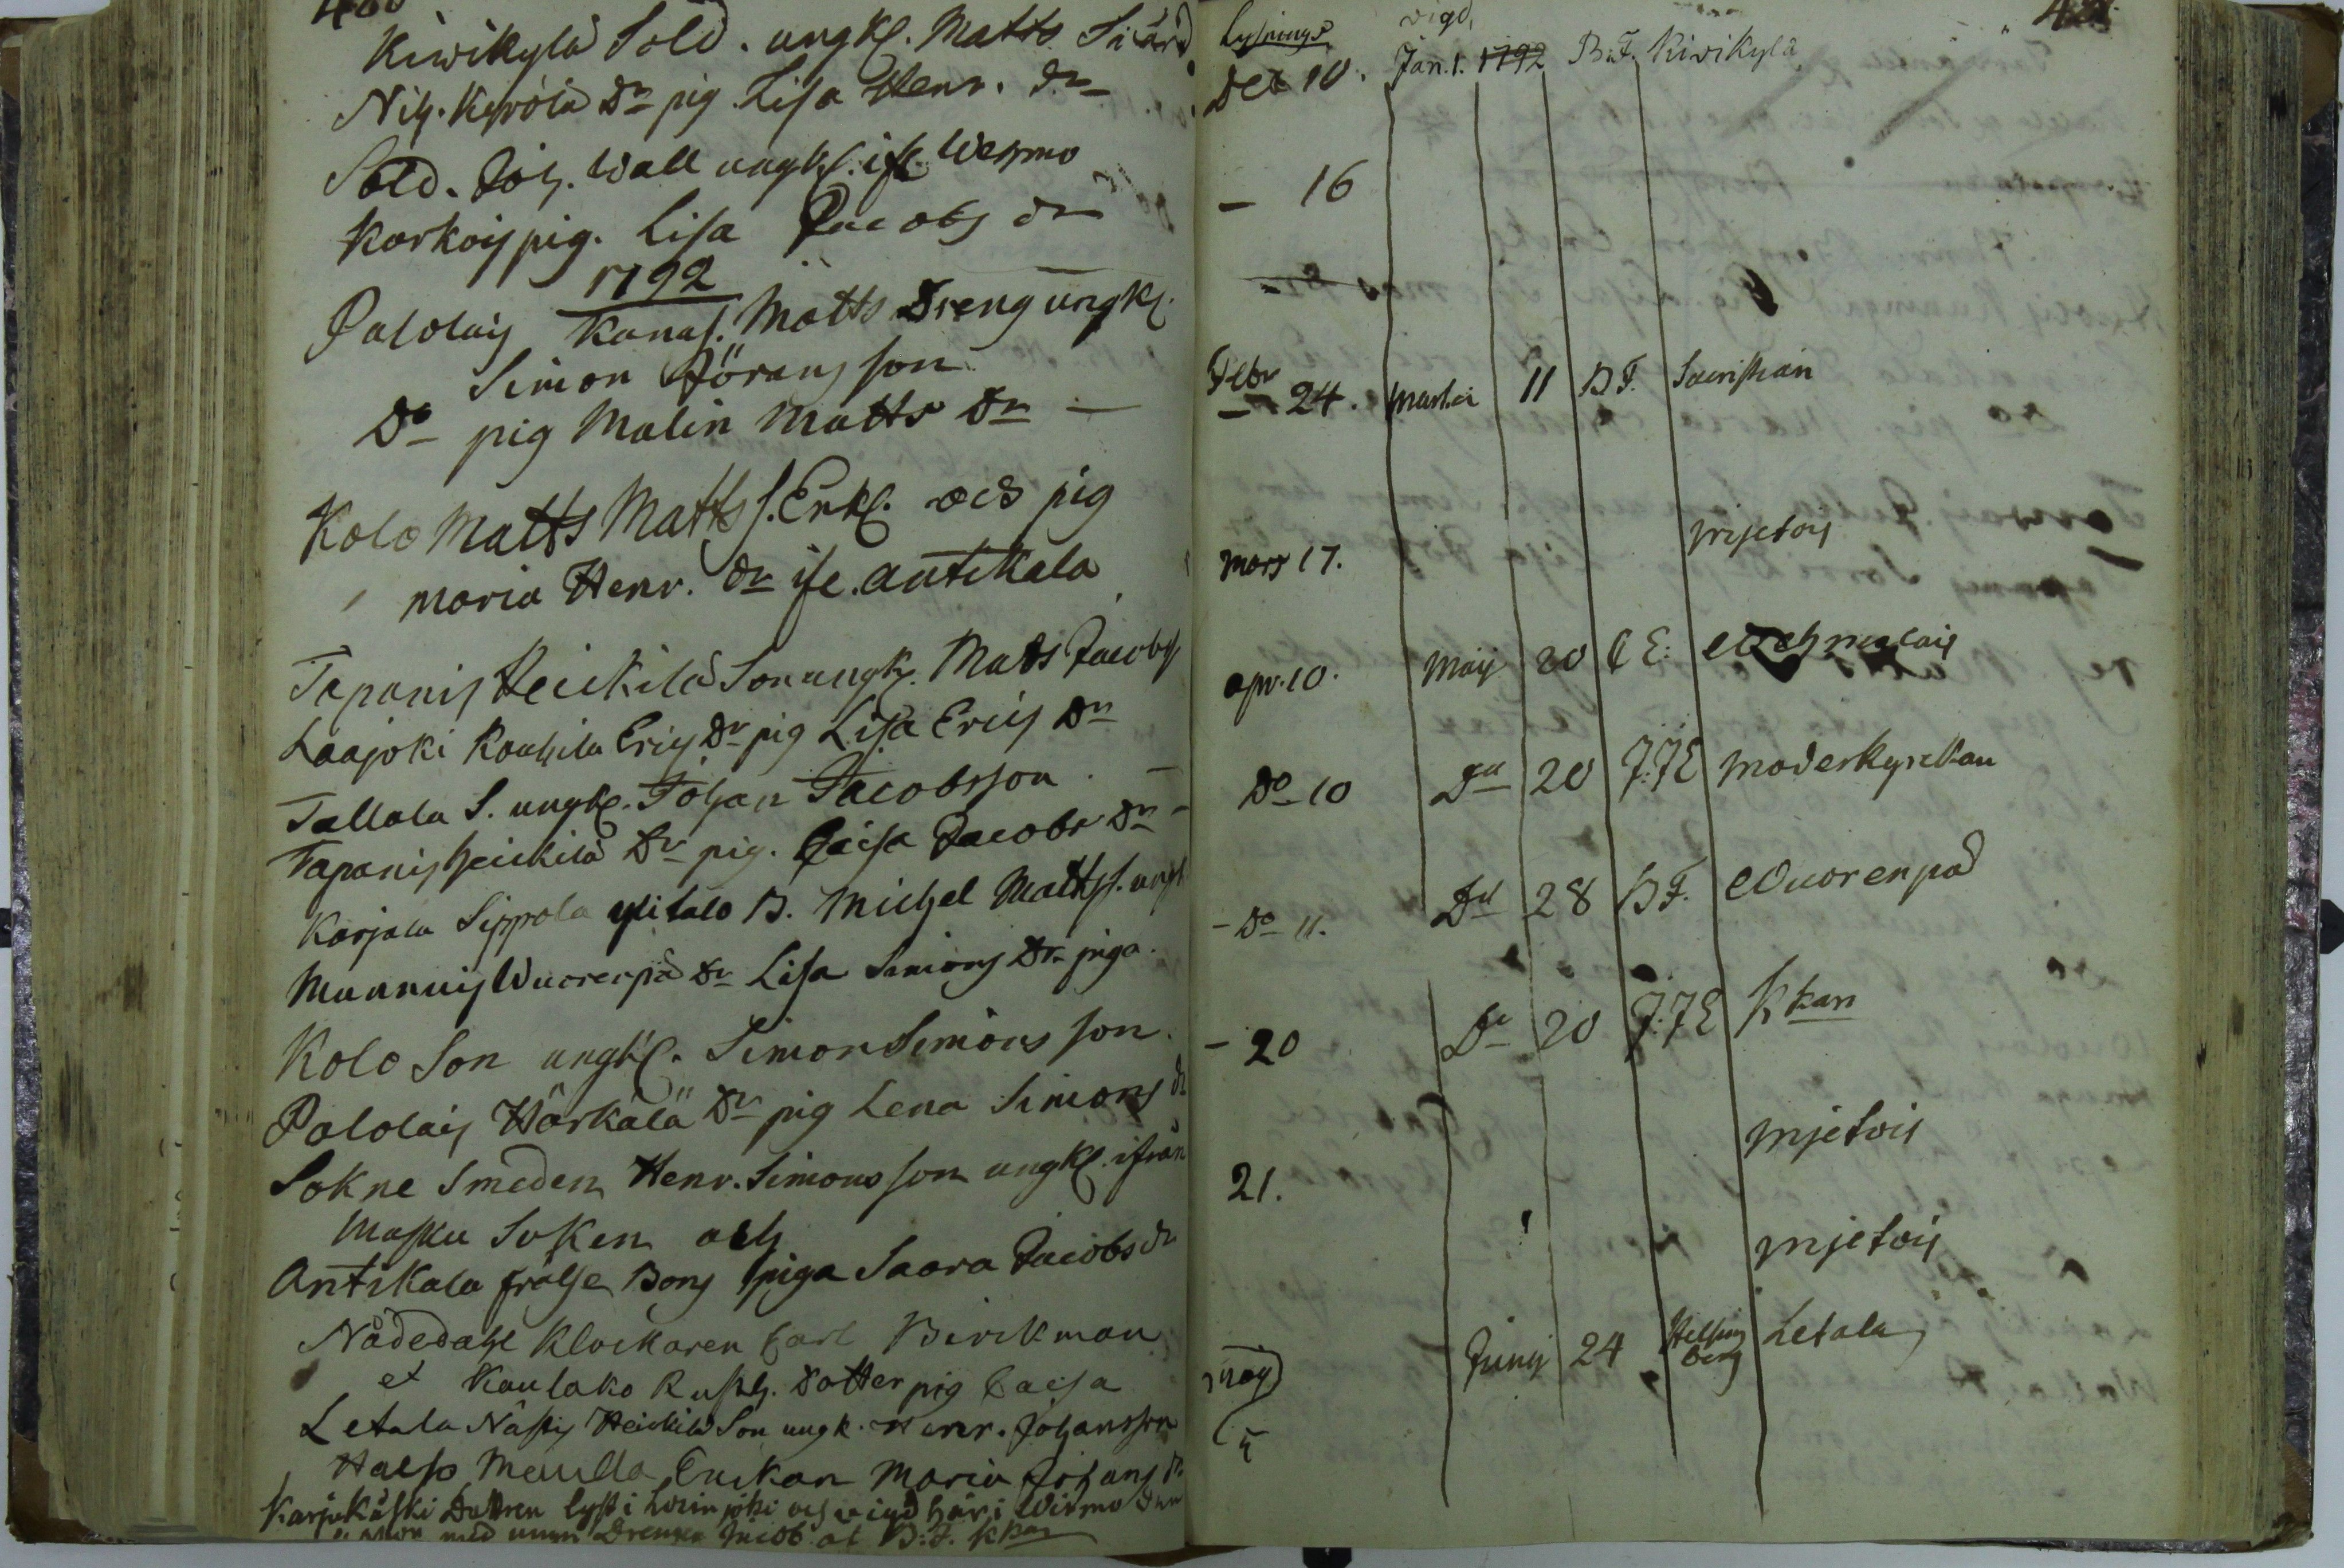 Kiwikylä Sold. ungkl. Matts Swärd
Nih. Kyrölä Dr pig Lisa Henr. dr
Sold. Joh. Wall ungkl. ifr. Wehmo
Karkois pig. Lisa Jacobs dr
1792
Palolais Kanas. Matts Dreng ungkl.
Simon Jöransson
Do pig Malin Matts dr
Kolo Matts Matts s. Enkl. och pig
Maria Henr. dr ifr. Antikala
Tapanis Heickilä Son ungk. Mats Jacobs
Laajoki Kouhila Erics Dr pig Lisa Erics dr
Tallala S. ungkl. Johan Jacobsson
Tapanis Heickilä Dr pig. Caisa Jacobs dr
Karjala Sippola ylitalo B. Michel Matts s. ungk
Munnuis Wuorenpä Dr Lisa Simons dr piga
Kolo Son ungkl. Simon Simons son
Palolais Härkälä Dr pig Lena Simons dr
Sokne Smeden Henr. Simonsson ungkl. ifrån
Masku Soken och
Antikala frälse Bong piga Saara Jacobs dr
Nådedahl Klockaren Carl Birckman
et Kaulako Rusth. Dotter pig Caisa
Letala Heickilä Son ungk. Henr. Johansson
Maria Johans dr
Karjakåski Dottren lyst i och vigd här i Wirmo
med Drengen Jacob af B:F. Kkan
Lysnings vigd
Dec 10. Jan. 1. 1792 B.F. Kivikylä
– 16
Febr 24. Martii 11 B F. Sacristian
Mars 17.
Apr. 10. Maij 20 C E:
Do 10 Do 20 J:JE Moderkyrckan
Do 11. Do 28 B F. Wuorenpä
– 20 Do 20 J:JE Kkan
21.
Maij 5 Junij 24 Helsingberg Letala